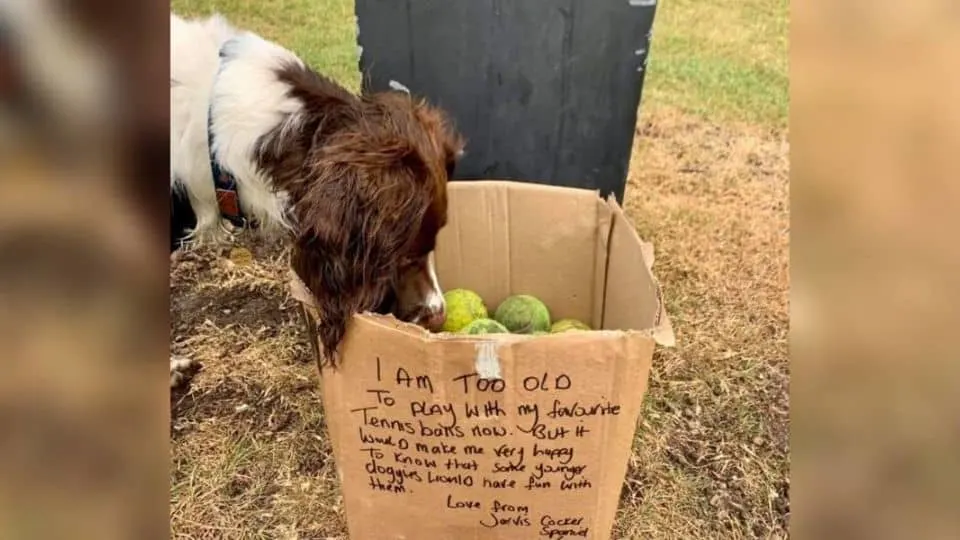 I AM TOO OLD
To PLAY WITH my favourite
Tennis balls now. But it
Would make me very happy
To know that some younger
doggies would have fun with
them.
Love from
Jarvis Cocker
Spaniel